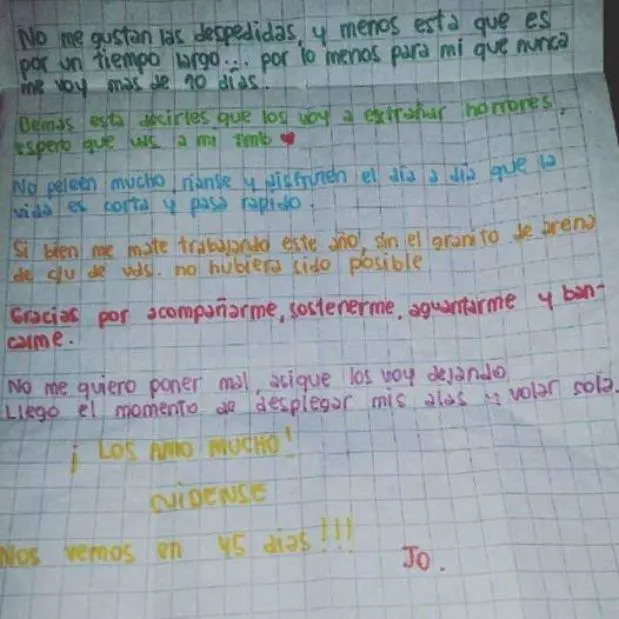 No me gustan las despedidas, y menos esta que es
por un tiempo largo... por lo menos para mi que nunca
me voy mas de 10 dias.
Demas esta decirles que los voy a extrañar horrores,
espero que uds a mi tmb ♥
No peleen mucho, rianse y disfruten el dia a dia que la
vida es corta y pasa rapido.
Si bien me mate trabajando este año, sin el granito de arena
de c/u de uds. no hubiera sido posible
Gracias por acompañarme, sostenerme, aguantarme y ban-
carme.
No me quiero poner mal, asique los voy dejando
Llego el momento de desplegar mis alas y volar sola.
¡ LOS AMO MUCHO!
CUIDENSE
Nos vemos en 45 dias!!!
Jo.